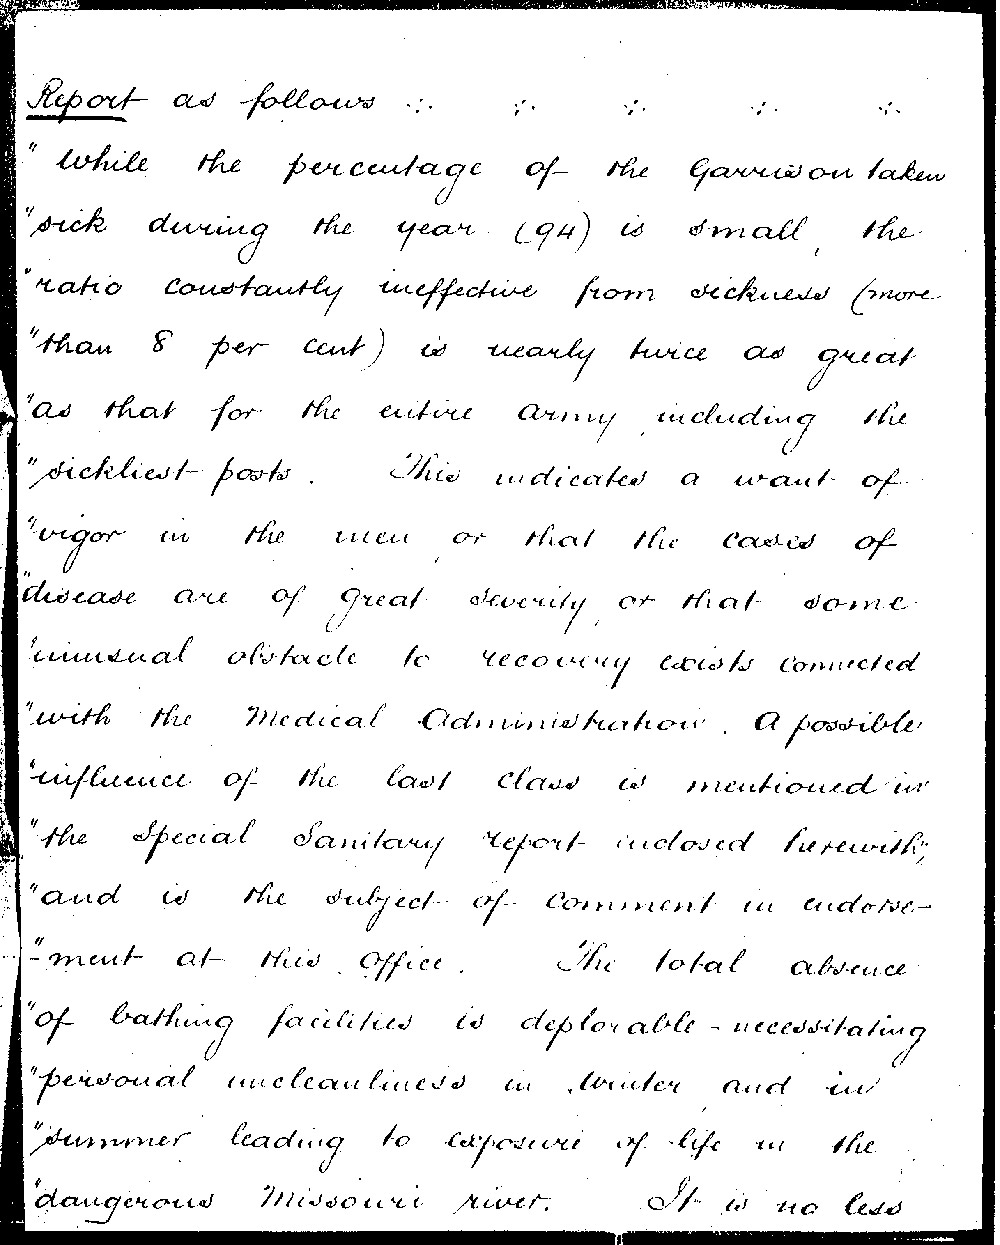 Report as follows ∴ ∴ ∴ ∴ ∴
" While the percentage of the Garrison taken
"sick during the year (94) is small, the
"ratio constantly ineffective from sickness (more
"than 8 per cent) is nearly twice as great
"as that for the entire army, including the
"sickliest posts. This indicates a want of
"vigor in the men, or that the cases of
"disease are of great severity, or that some
"unusual obstacle to recovery exists connected
"with the Medical Administration. A possible
"influence of the last class is mentioned in
"the Special Sanitary report inclosed herewith,
"and is the subject of comment in endorse-
"-ment at this office. The total absence
"of bathing facilities is deplorable - necessitating
"personal uncleanliness in Winter, and in
"summer leading to exposure of life in the
"dangerous Missouri river. It is no less